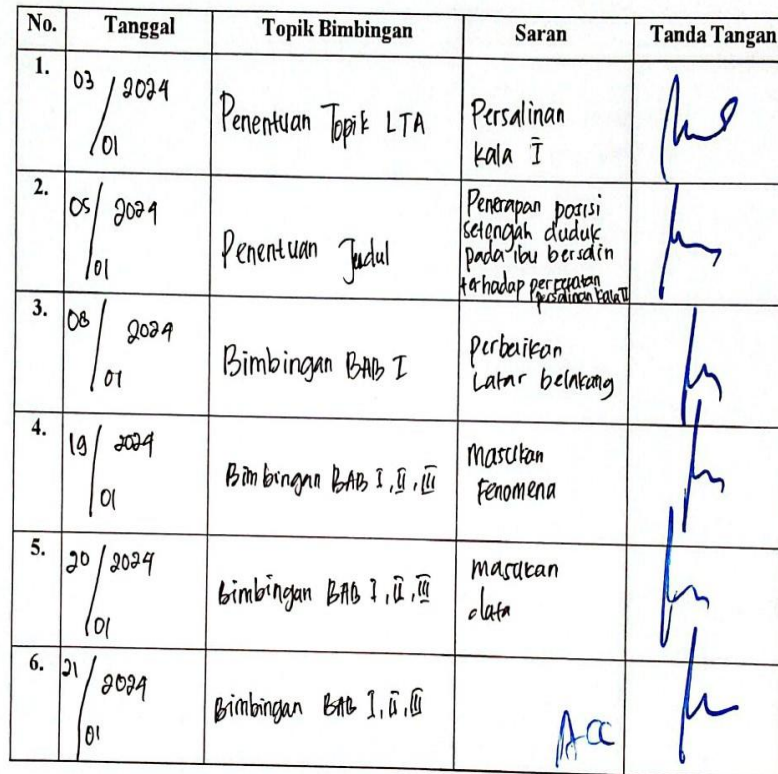 No. Tanggal Topik Bimbingan Saran Tanda Tangan
1. 03/01 2024 Penentuan Topik LTA Persalinan
kala I
2. 05/01 2024 Penentuan Judul Penerapan posisi
setengah duduk
pada ibu bersalin
terhadap percepatan
persalinan kala II
3. 08/01 2024 Bimbingan BAB I perbaikan
Latar belakang
4. 19/01 2024 Bimbingan BAB I, II, III masukan
Fenomena
5. 20/01 2024 Bimbingan BAB I, II, III masukan
data
6. 21/01 2024 Bimbingan BAB I, II, III ACC